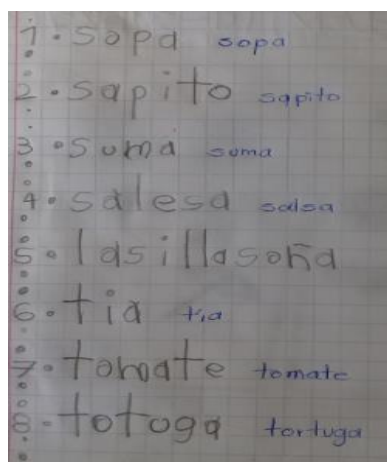 1. sopa sopa
2. sapito sapito
3. suma suma
4. salesa salsa
5. lasillasoña
6. tia tia
7. tomate tomate
8. totuga tortuga